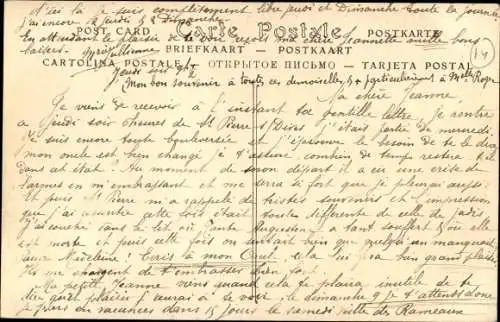 et là je suis complètement libre jeudi et Dimanche toute la journée
j'ai encore à jeudi et Dimanche
En attendant le plaisir de te voir ma chère Jeannette mille bons
baisers
Jeudi soir 9h
POST CARD Carte Postale POSTKARTE
BRIEFKAART — POSTKAART
CARTOLINA POSTALE ОТКРЫТОЕ ПИСЬМО — TARJETA POSTAL
Mon bon souvenir à toutes ces demoiselles & particulièrement à Melle
Ma chère Jeanne,
Je viens de recevoir à l'instant ta gentille lettre, je rentre
Jeudi soir 6 heures de St Pierre s/Dives j'étais partie de mercredi
Je suis encore toute bouleversée et j'éprouve le besoin de te le dire
mon oncle est bien changé je t'assure combien de temps restera-t-il
dans cet état? Au moment de mon départ il a eu une crise de
larmes en m'embrassant et me serra si fort que je pleurais aussi
Et puis St Pierre m'a rappelé de tristes souvenirs et l'impression
que j'ai ressentie cette fois était toute différente de celle de jadis
J'ai couché dans le lit où tante Augustine a tant souffert & où elle
est morte et puis cette fois on sentait bien que quelqu'un manquait
Madeleine! Écris à mon Oncle, cela lui fera bien grand plaisir
Ils me chargent de t'embrasser bien fort.
Ma petite Jeanne viens quand cela te plaira inutile de te
dire quel plaisir j'aurai à te voir. le dimanche 9 je t'attends donc
je pars en vacances dans 15 jours le samedi veille des Rameaux